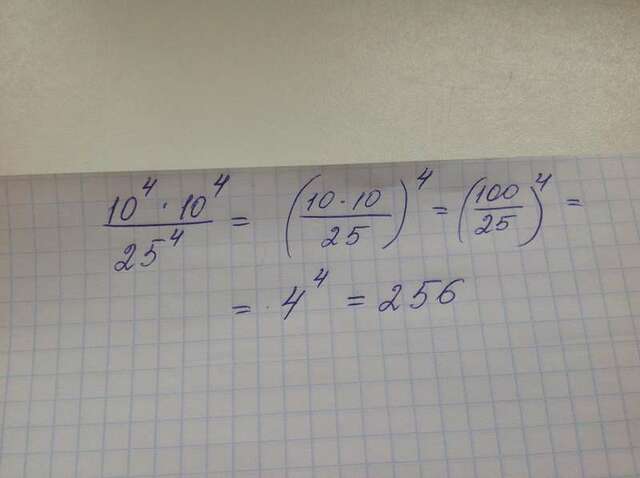 \frac{10^4 \cdot 10^4}{25^4} = \left(\frac{10 \cdot 10}{25}\right)^4 = \left(\frac{100}{25}\right)^4 =
= \cdot 4^4 = 256